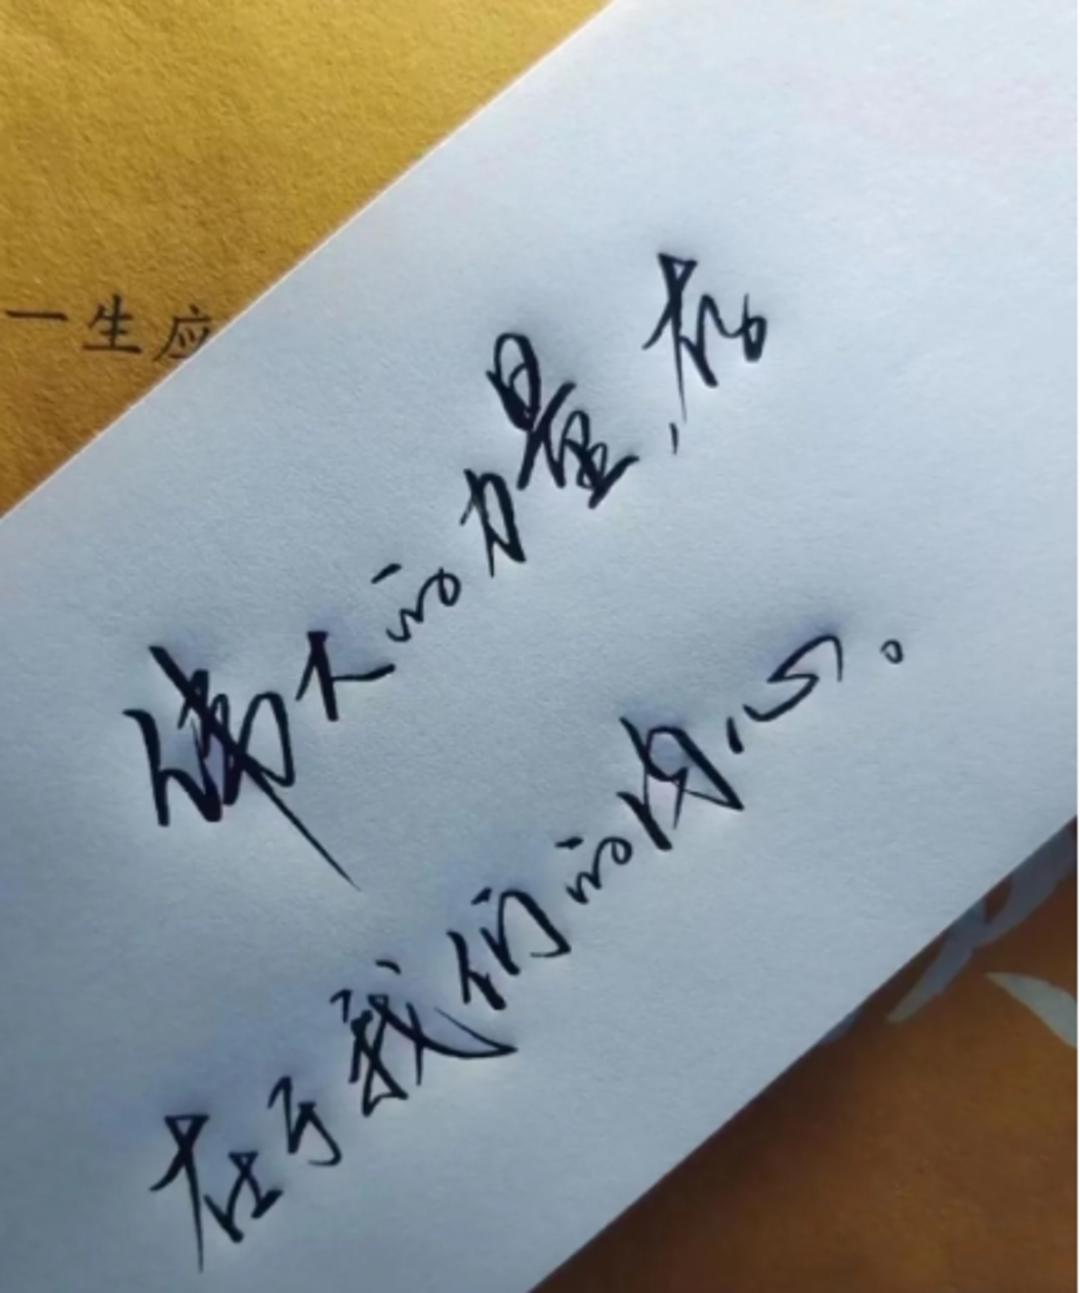 一生应
伟大的力量，存
在于我们的内心。